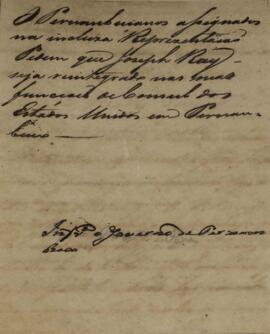 Os Pernambucanos assignados
na incluza Representação
Pedem que Joseph Ray
seja reintegrado nas suas
funções de Consul dos
Estados Unidos em Pernam-
buco
Infe o Governo de Pernam
buco